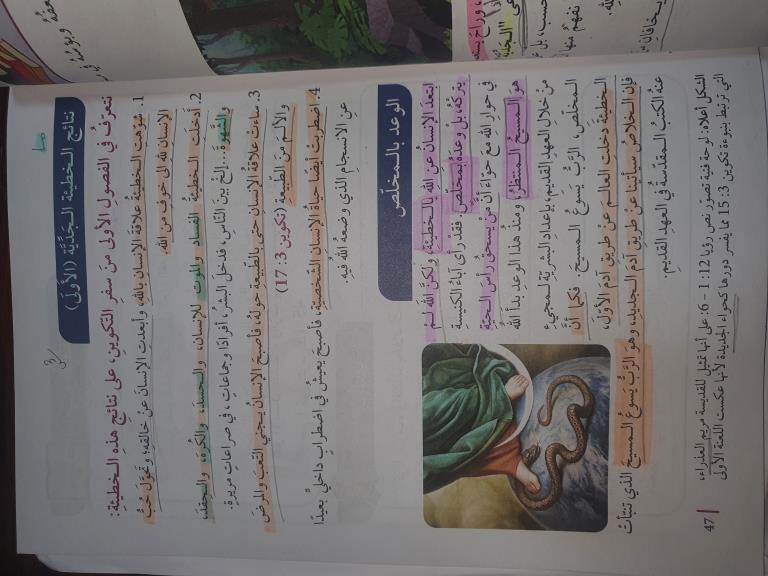 نتائج الخطيئة الجَدّيَّة (الأولى)
نتعرّفُ في الفصولِ الأولى منْ سفرِ التكوين، على نتائجِ هذِهِ الخطيئة:
1. شوَّهتِ الخطيئةُ علاقةَ الإنسانِ باللهِ، وأبعدتِ الإنسانَ عنْ خالقه؛ وتحوّلَ حُبُّ
الإنسانِ للهِ إلى خوفٍ من الله.
2. أدخلَتِ الخطيئةُ الفسادَ والموتَ للإنسانِ، والحسدَ، والكُرهَ، والحِقدَ،
والشهوةَ... الخ بَينَ النّاسِ، فدخلَ البشرُ، أفرادًا وجماعاتٍ، في صراعاتٍ مريرة.
3. ساءَتْ علاقةُ الإنسانِ حتّى بالطّبيعةِ حولهُ، فأصبحَ الإنسانُ يجني التّعبَ والمرضَ
والألمَ منَ الطّبيعةِ (تكوين 3: 17)
4. اضطربَتْ أيضًا حياةُ الإنسانِ الشّخصيّةِ، فأصبحَ يعيشُ في اضطرابٍ داخليٍّ بعيدًا
عنِ الانسجامِ الذي وضعهُ اللهُ فيهِ.
الوعد بالمخلّص
ابتعدَ الإنسانُ عنِ اللهِ بالخطيئةِ ولكنَّ اللهَ لمْ
يتركْهُ بلْ وعدَهُ بمخلّصٍ. فقدْ رأى آباءُ الكنيسةِ
في حوارِ اللهِ معَ حوّاءَ أنَّ منْ يسحقُ رأسَ الحيّةِ
هوَ المسيحُ المنتظرُ، ومنذُ هذا الوعدِ بدأَ اللهُ
منْ خلالِ العهدِ القديمِ، بإعدادِ البشريّةِ لمجيءِ
المخلّصِ، الرّبِّ يسوعَ المسيحِ. فكما أنَّ
الخطيئةَ دخلَتِ العالمَ عنْ طريقِ آدمَ الأوّلِ،
فإنَّ الخلاصَ سيأتينا عنْ طريقِ آدمَ الجديدِ، وهوَ الرّبُّ يسوعُ المسيحُ الذي تنبّأتْ
عنهُ الكتبُ المقدّسةُ في العهدِ القديمِ.
الشكل أعلاه: لوحة فنية تصوّر نص رؤيا 12: 1 – 6؛ على أنها تمثيل للقديسة مريم العذراء،
التي ترتبط بنبوءة تكوين 3: 15 مما يفسر دورها كحواء الجديدة لأنها عكست اللعنة الأولى
47